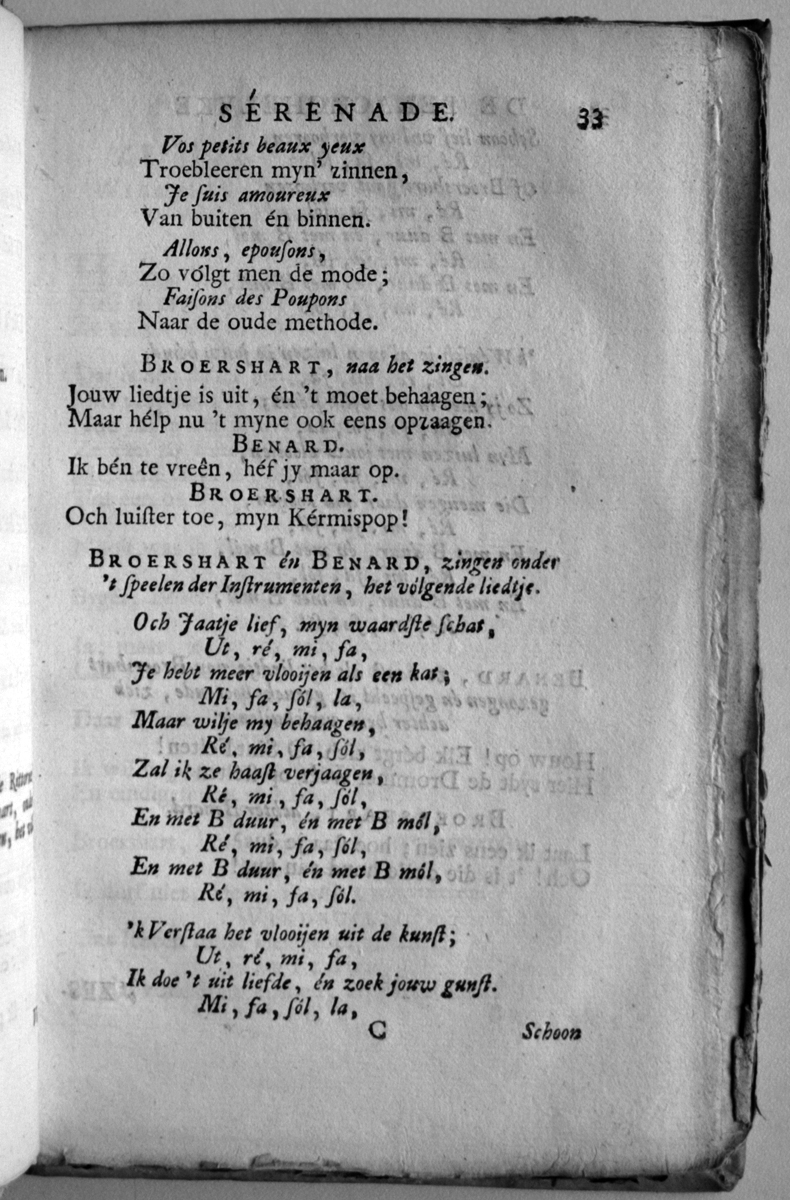 SÉRENADE. 33
Vos petits beaux yeux
Troebleeren myn' zinnen,
Je ſuis amoureux
Van buiten én binnen.
Allons, epouſons,
Zo vólgt men de mode;
Faiſons des Poupons
Naar de oude methode.
BROERSHART, naa het zingen.
Jouw liedtje is uit, én 't moet behaagen;
Maar hélp nu 't myne ook eens opzaagen.
BENARD.
Ik bén te vreên, héf jy maar op.
BROERSHART.
Och luiſter toe, myn Kérmispop!
BROERSHART én BENARD, zingen onder
't ſpeelen der Inſtrumenten, het vólgende liedtje.
Och Jaatje lief, myn waardſte ſchat,
Ut, ré, mi, fa,
Je hebt meer vlooijen als een kat;
Mi, fa, ſól, la,
Maar wilje my behaagen,
Ré, mi, fa, ſól,
Zal ik ze haaſt verjaagen,
Ré, mi, fa, ſól,
En met B duur, én met B mól,
Ré, mi, fa, ſól,
En met B duur, én met B mól,
Ré, mi, fa, ſól.
'k Verſtaa het vlooijen uit de kunſt;
Ut, ré, mi, fa,
Ik doe 't uit liefde, én zoek jouw gunſt.
Mi, fa, ſól, la,
C Schoon